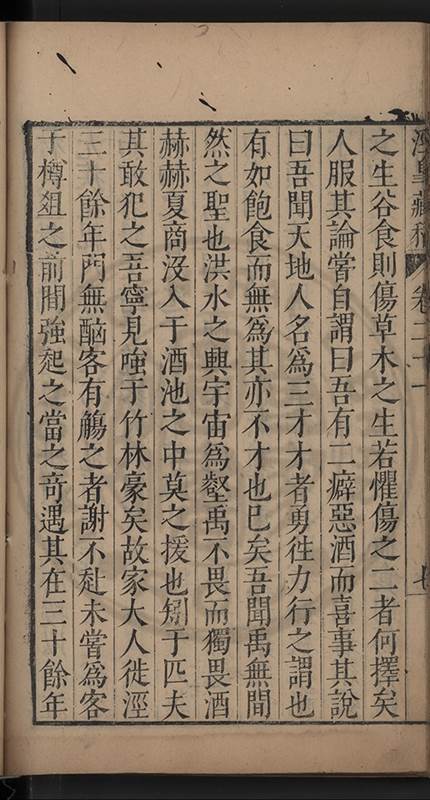 之生谷食則傷草木之生若懼傷之二者何擇矣
人服其論嘗自謂曰吾有二癖惡酒而喜事其說
曰吾聞天地人名為三才才者勇徃力行之謂也
有如飽食而無為其亦不才也已矣吾聞禹無間
然之聖也洪水之興宇宙為壑禹不畏而獨畏酒
赫赫夏商沒入于酒池之中莫之援也矧于匹夫
其敢犯之吾寧見嗤于竹林豪矣故家大人徙涇
三十餘年門無酗客有觴之者謝不赴未嘗為客
于樽俎之前間強起之當之奇遇其在三十餘年